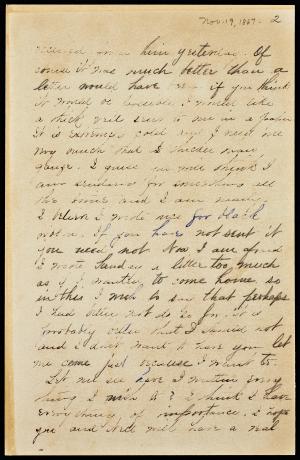 Nov. 19, 1867. 2
him yesterday. Of
course it was much better than a
letter would have been if you think
it would be I would like
a thick veil sent to me in a paper
it is cold and I need one
very much that is thicker than
I guess you will think I
am sending for something all
the time and I am
I believe I wrote you for black
If you have not sent it
you need not Now I am afraid
I wrote Sunday a letter too much
as if I wanted to come home so
in this I wish to say that perhaps
I had better not do so for it is
probably better that I should not
and I don't want to have you let
me come just because I want to.
Let me see have I written every
thing I wish to? I think I have
everything of importance. I hope
you and will have a real